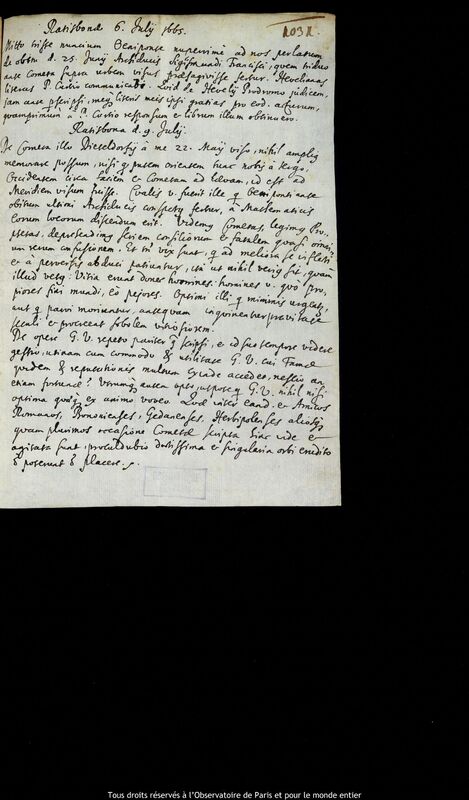 Ratisbonæ 6. Julij 1665.
1031
Mitto triste nuncium Oeniponte nuperrimè ad nos perlatum
de obitu d. 25. Junij Archiducis Sigismundi Francisci, quem triduo
ante Cometa supra urbem visus præsagivisse fertur. Hevelianas
literas P. Curtio communicabo. Quid de Hevelij Prodromo judicem,
jam ante perscripsi, meis literis meis ipsi gratias pro eod. acturum,
quamprimum à P. Curtio responsum et librum illum obtinuero.
Ratisbona d. 9. Julij
De Cometa illo Dieseldorfij à me 22. Maij viso, nihil amplius
memorare possum, nisi quod putem orientem tunc nobis à tergo,
Occidentem circa faciem et Cometam ad lævam, id est ad
Meridiem visum fuisse. Qualis v. fuerit ille q Oeniponti ante
obitum ultimi Archiducis conspectus fertur, à Mathematicis
eorum locorum discendum erit. Videmus Cometas, legimus Pro-
phetas, deprehendimus seriem consiliorum et fatalem quasi omni-
um rerum confusionem. Et tn vix sunt, q ad meliora se inflecti
et à perversis abduci patiantur, ita ut nihil verius sit, quam
illud vetus: Vitia erunt donec homines: homines v. quo pro-
piores fini mundi, eò pejores. Optimi illi q minimis urgentur,
aut q parvi moriuntur, antequam inquinentur pravitate
seculi et procreent sobolem vitiosiorem.
De opere G. V. repeto pariter q scripsi, et id suo tempore videre
gestio, utinam cum commodo et utilitate G. V. cui Famæ
quidem et reputationis multum exinde accedet, nescio an
etiam fortunæ? Utrumque autem opto, utpote q G. V. nihil nisi
optima quæque ex animo voveo. Quod inter eand. et Amicos
Romanos, Bononienses, Gedanenses, Herbipolenses aliosque
quam plurimos occasione Cometæ scripta hinc inde et
agitata sunt, proculdubio doctissima et singularia orbi erudito
et poterunt et placere.
Tous droits réservés à l'Observatoire de Paris et pour le monde entier